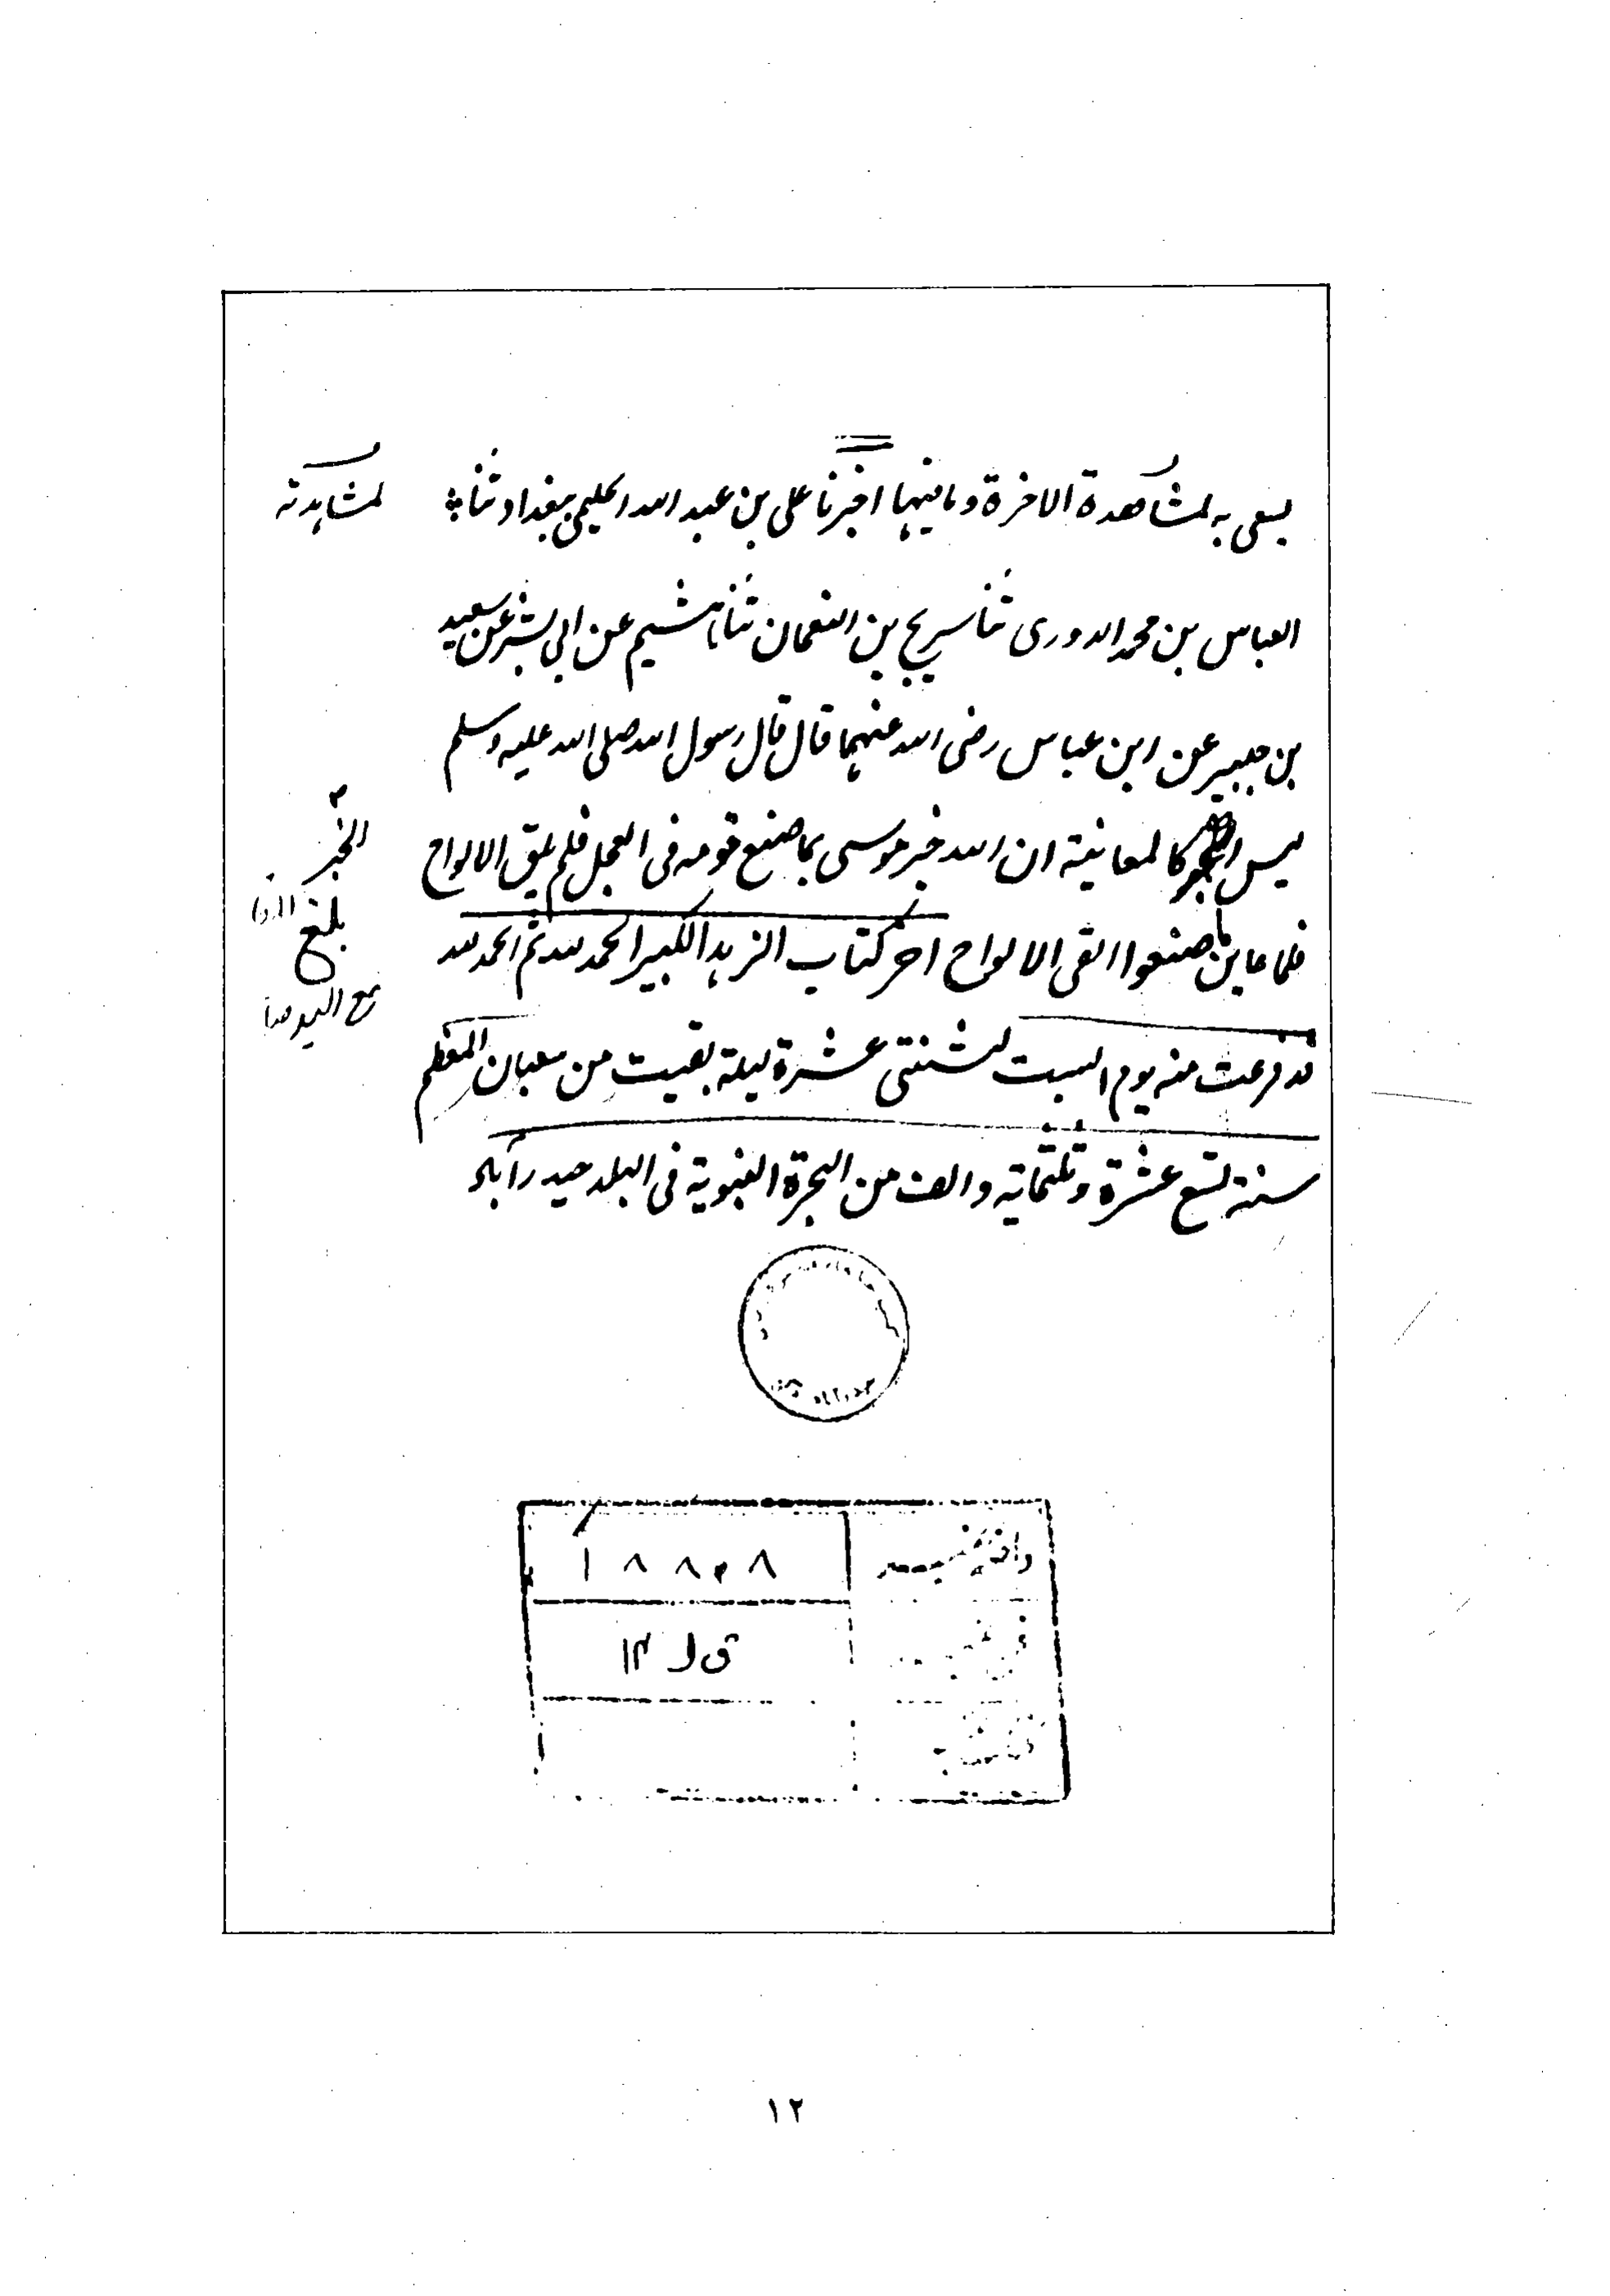 يسعى به لمشاهدة الاخرة وما فيها اخبرنا على بن عبد الله الحليمى ببغداد ثنا
لمشاهدته
العباس بن محمد الدورى ثنا سريج بن النعمان ثنا هشيم عن ابى بشر عن سعيد
بن جبير عن ابن عباس رضى الله عنهما قال قال رسول الله صلى الله عليه وسلم
ليس الخبر كالمعاينة ان الله خبر موسى بما صنع قومه فى العجل فلم يلق الالواح
الخبر
فلما عاين ما صنعوا القى الالواح اخر كتاب الزهد الكبير الحمد لله ثم الحمد لله
بلغ
قد فرغت منه يوم السبت لثنتى عشرة ليلة بقيت من شعبان المعظم
سنة تسع عشرة وثلثمائة والف من الهجرة النبوية فى البلد حيدرآباد
١٨٨٠٨
١٢